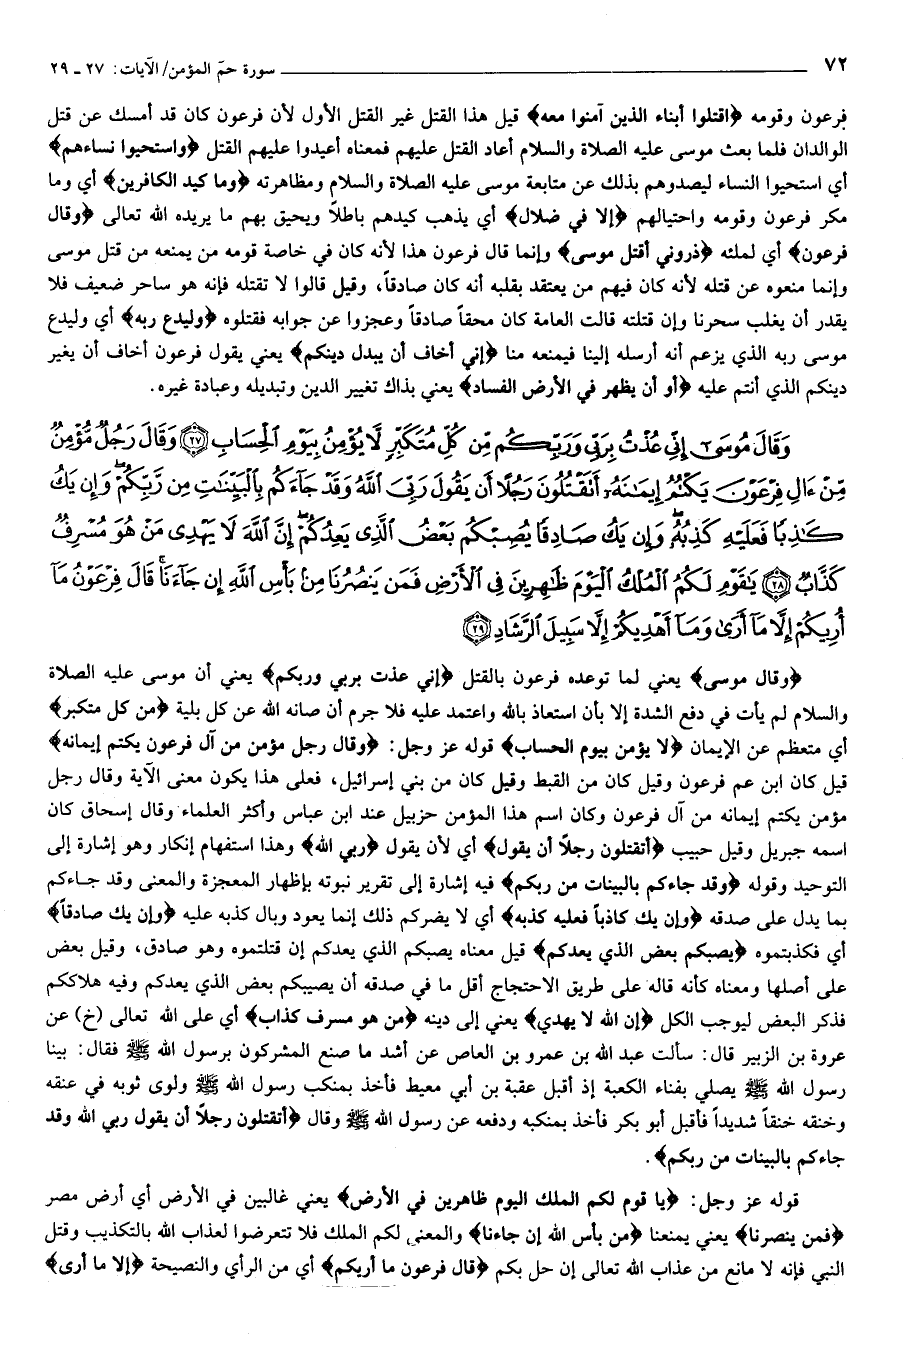 ٧٢ سورة حمَ المؤمن/ الآيات: ٢٧ ـ ٢٩
فرعون وقومه ﴿اقتلوا أبناء الذين آمنوا معه﴾ قيل هذا القتل غير القتل الأول لأن فرعون كان قد أمسك عن قتل
الوالدان فلما بعث موسى عليه الصلاة والسلام أعاد القتل عليهم فمعناه أعيدوا عليهم القتل ﴿واستحيوا نساءهم﴾
أي استحيوا النساء ليصدوهم بذلك عن متابعة موسى عليه الصلاة والسلام ومظاهرته ﴿وما كيد الكافرين﴾ أي وما
مكر فرعون وقومه واحتيالهم ﴿إلا في ضلال﴾ أي يذهب كيدهم باطلاً ويحيق بهم ما يريده الله تعالى ﴿وقال
فرعون﴾ أي لملئه ﴿ذروني أقتل موسى﴾ وإنما قال فرعون هذا لأنه كان في خاصة قومه من يمنعه من قتل موسى
وإنما منعوه عن قتله لأنه كان فيهم من يعتقد بقلبه أنه كان صادقاً، وقيل قالوا لا تقتله فإنه هو ساحر ضعيف فلا
يقدر أن يغلب سحرنا وإن قتلته قالت العامة كان محقاً صادقاً وعجزوا عن جوابه فقتلوه ﴿وليدع ربه﴾ أي وليدع
موسى ربه الذي يزعم أنه أرسله إلينا فيمنعه منا ﴿إني أخاف أن يبدل دينكم﴾ يعني يقول فرعون أخاف أن يغير
دينكم الذي أنتم عليه ﴿أو أن يظهر في الأرض الفساد﴾ يعني بذاك تغيير الدين وتبديله وعبادة غيره.
وَقَالَ مُوسَىٰٓ إِنِّي عُذْتُ بِرَبِّي وَرَبِّكُم مِّن كُلِّ مُتَكَبِّرٍ لَّا يُؤْمِنُ بِيَوْمِ ٱلْحِسَابِ ﴿٢٧﴾ وَقَالَ رَجُلٌ مُّؤْمِنٌ
مِّنْ ءَالِ فِرْعَوْنَ يَكْتُمُ إِيمَٰنَهُۥٓ أَتَقْتُلُونَ رَجُلًا أَن يَقُولَ رَبِّيَ ٱللَّهُ وَقَدْ جَآءَكُم بِٱلْبَيِّنَٰتِ مِن رَّبِّكُمْ ۖ وَإِن يَكُ
كَٰذِبًا فَعَلَيْهِ كَذِبُهُۥ ۖ وَإِن يَكُ صَادِقًا يُصِبْكُم بَعْضُ ٱلَّذِى يَعِدُكُمْ ۖ إِنَّ ٱللَّهَ لَا يَهْدِى مَنْ هُوَ مُسْرِفٌ
كَذَّابٌ ﴿٢٨﴾ يَٰقَوْمِ لَكُمُ ٱلْمُلْكُ ٱلْيَوْمَ ظَٰهِرِينَ فِى ٱلْأَرْضِ فَمَن يَنصُرُنَا مِنۢ بَأْسِ ٱللَّهِ إِن جَآءَنَا ۚ قَالَ فِرْعَوْنُ مَآ
أُرِيكُمْ إِلَّا مَآ أَرَىٰ وَمَآ أَهْدِيكُمْ إِلَّا سَبِيلَ ٱلرَّشَادِ ﴿٢٩﴾
﴿وقال موسى﴾ يعني لما توعده فرعون بالقتل ﴿إني عذت بربي وربكم﴾ يعني أن موسى عليه الصلاة
والسلام لم يأت في دفع الشدة إلا بأن استعاذ بالله واعتمد عليه فلا جرم أن صانه الله عن كل بلية ﴿من كل متكبر﴾
أي متعظم عن الإيمان ﴿لا يؤمن بيوم الحساب﴾ قوله عز وجل: ﴿وقال رجل مؤمن من آل فرعون يكتم إيمانه﴾
قيل كان ابن عم فرعون وقيل كان من القبط وقيل كان من بني إسرائيل، فعلى هذا يكون معنى الآية وقال رجل
مؤمن يكتم إيمانه من آل فرعون وكان اسم هذا المؤمن حزبيل عند ابن عباس وأكثر العلماء وقال إسحاق كان
اسمه جبريل وقيل حبيب ﴿أتقتلون رجلاً أن يقول﴾ أي لأن يقول ﴿ربي الله﴾ وهذا استفهام إنكار وهو إشارة إلى
التوحيد وقوله ﴿وقد جاءكم بالبينات من ربكم﴾ فيه إشارة إلى تقرير نبوته بإظهار المعجزة والمعنى وقد جاءكم
بما يدل على صدقه ﴿وإن يك كاذباً فعليه كذبه﴾ أي لا يضركم ذلك إنما يعود وبال كذبه عليه ﴿وإن يك صادقاً﴾
أي فكذبتموه ﴿يصبكم بعض الذي يعدكم﴾ قيل معناه يصبكم الذي يعدكم إن قتلتموه وهو صادق، وقيل بعض
على أصلها ومعناه كأنه قاله على طريق الاحتجاج أقل ما في صدقه أن يصيبكم بعض الذي يعدكم وفيه هلاككم
فذكر البعض ليوجب الكل ﴿إن الله لا يهدي﴾ يعني إلى دينه ﴿من هو مسرف كذاب﴾ أي على الله تعالى (خ) عن
عروة بن الزبير قال: سألت عبد الله بن عمرو بن العاص عن أشد ما صنع المشركون برسول الله ﷺ فقال: بينا
رسول الله ﷺ يصلي بفناء الكعبة إذ أقبل عقبة بن أبي معيط فأخذ بمنكب رسول الله ﷺ ولوى ثوبه في عنقه
وخنقه خنقاً شديداً فأقبل أبو بكر فأخذ بمنكبه ودفعه عن رسول الله ﷺ وقال ﴿أتقتلون رجلاً أن يقول ربي الله وقد
جاءكم بالبينات من ربكم﴾.
قوله عز وجل: ﴿يا قوم لكم الملك اليوم ظاهرين في الأرض﴾ يعني غالبين في الأرض أي أرض مصر
﴿فمن ينصرنا﴾ يعني يمنعنا ﴿من بأس الله إن جاءنا﴾ والمعنى لكم الملك فلا تتعرضوا لعذاب الله بالتكذيب وقتل
النبي فإنه لا مانع من عذاب الله تعالى إن حل بكم ﴿قال فرعون ما أريكم﴾ أي من الرأي والنصيحة ﴿إلا ما أرى﴾